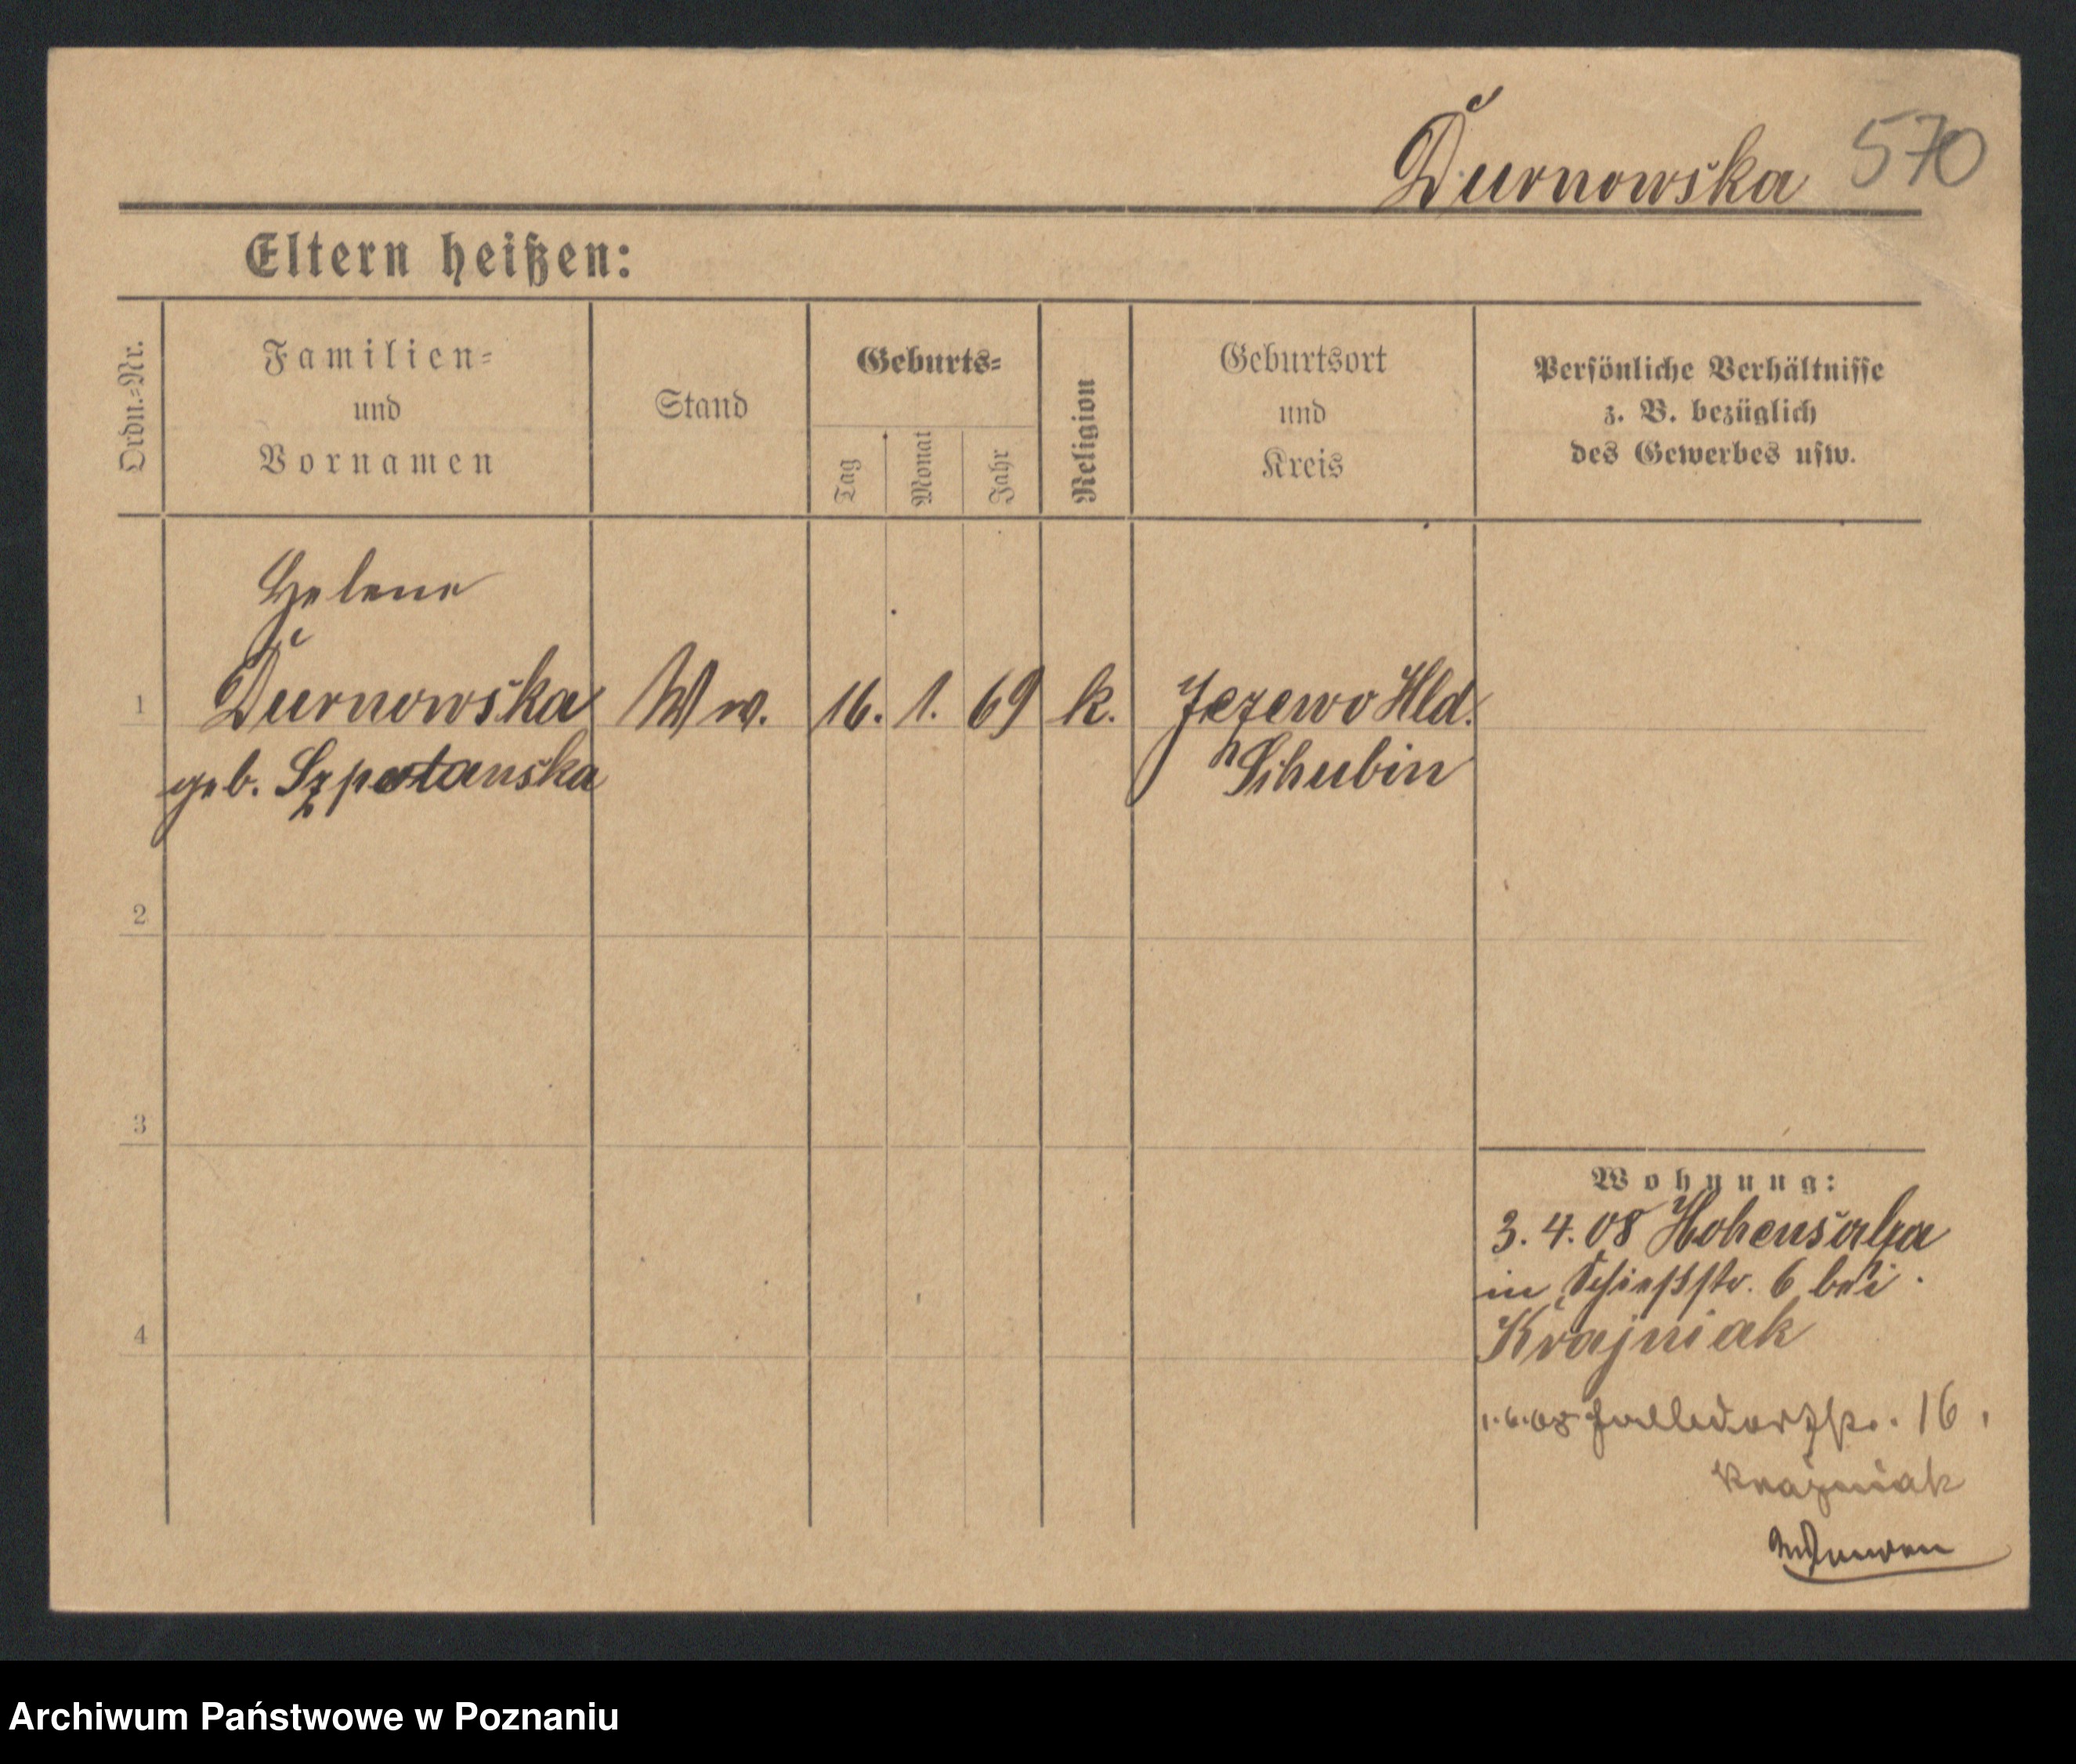 Durnowska 570
Eltern heißen:
Ordn.=Nr.
Familien=
und
Vornamen
Stand
Geburts=
Tag
Monat
Jahr
Religion
Geburtsort
und
Kreis
Persönliche Verhältnisse
z. B. bezüglich
des Gewerbes usw.
Helene
1 Durnowska Ww. 16. 1. 69 k. Jezewo Hld.
geb. Szpotanska Schubin
2
3
4
Wohnung:
3. 4. 08 Hohensalza
in Schießstr. 6 bei
Krajniak
1.6.08 Halldorfstr. 16.
Krajniak
Archiwum Państwowe w Poznaniu